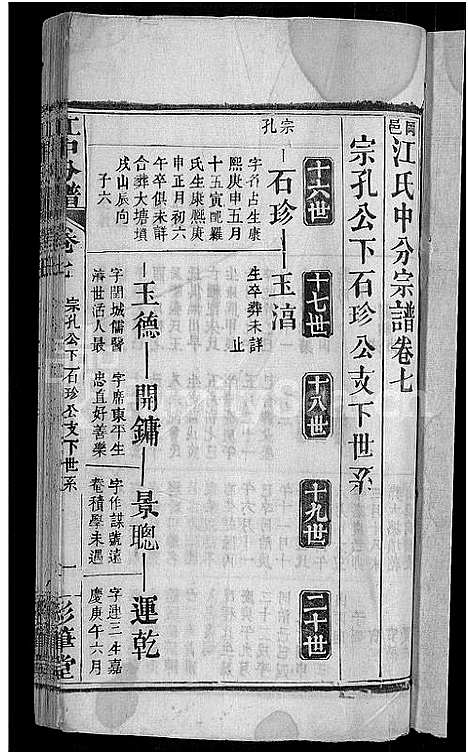 岡邑江氏中分宗譜卷七
宗孔公下石珍公支下世系
十六世
十七世
十八世
十九世
二十世
宗孔
石珍
玉滈
字名占生康
熙庚申五月
十五寅配羅
氏生康熈庚
申正月初六
午卒俱未詳
合葬大塘墳
戌山辰向
子六
生卒葬未詳
止
玉德
開鏞
景聰
運乾
字閏城儒醫
濟世活人最
字席東平生
忠直好善樂
字作謀號遠
菴積學未遇
字連三生嘉
慶庚午六月
江中分譜
卷七
宗孔公下石珍公支下世系
一
彩筆堂